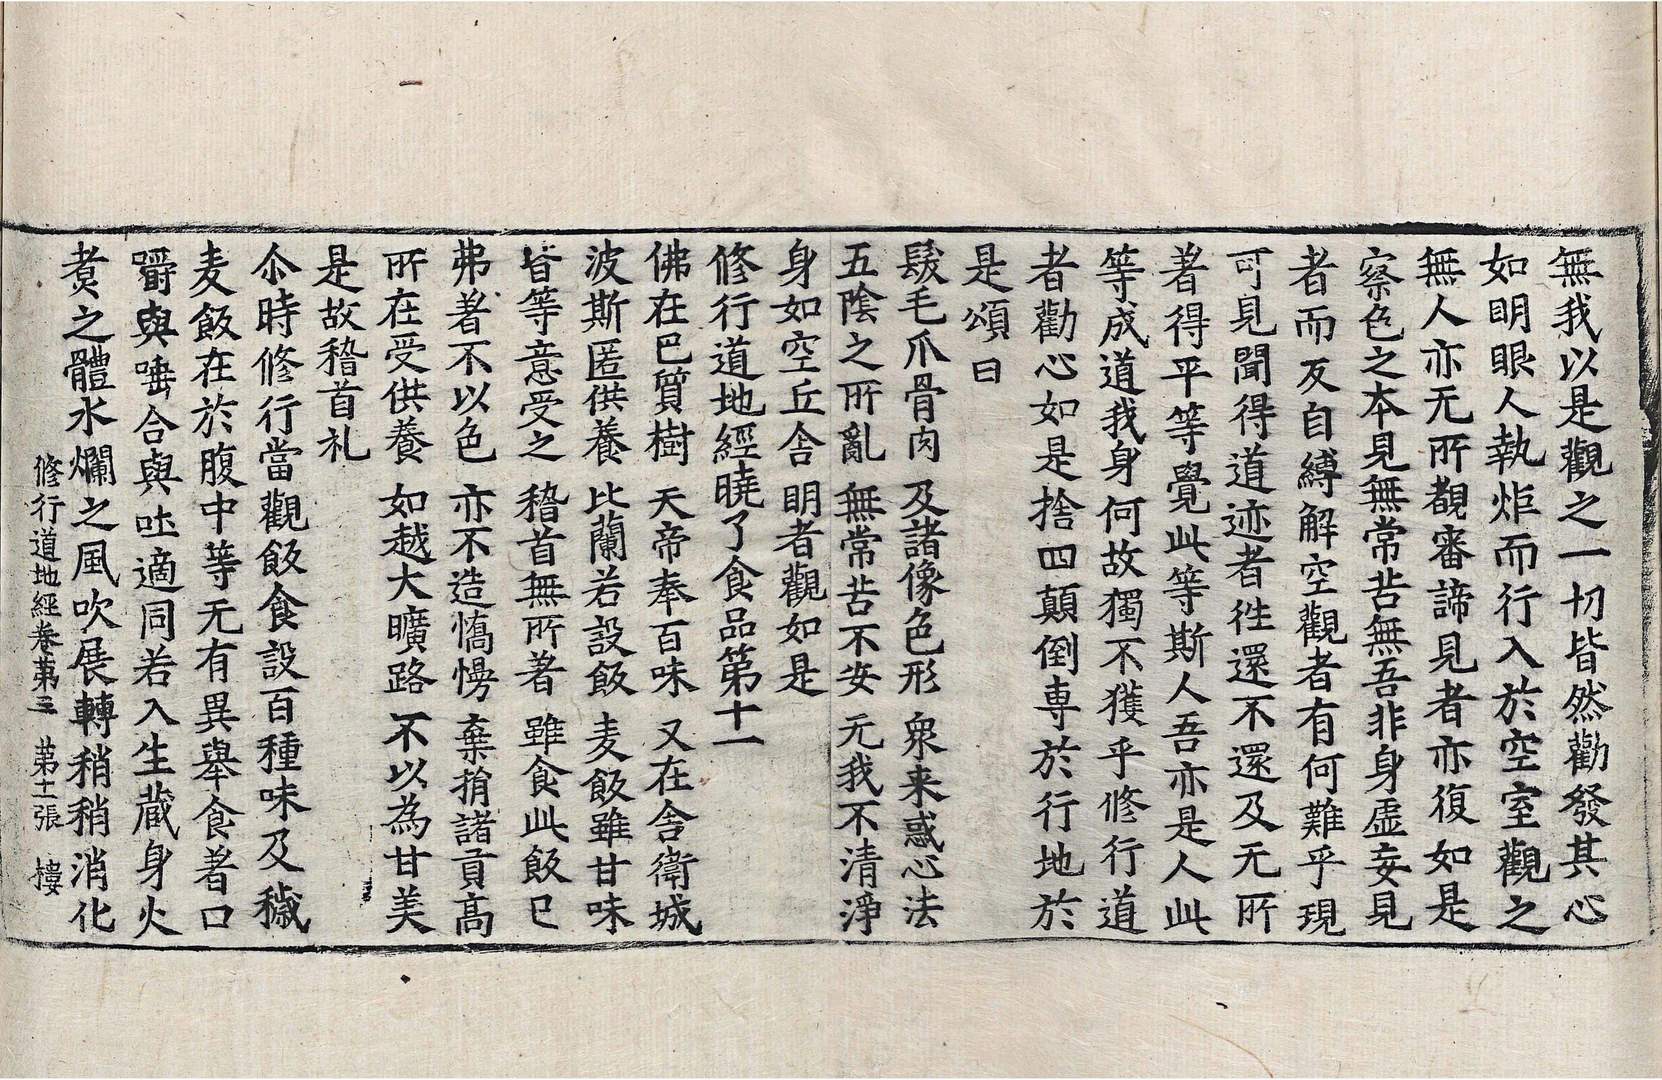 無我以是觀之一切皆然勸發其心
如明眼人執炬而行入於空室觀之
無人亦无所覩審諦見者亦復如是
察色之本見無常苦無吾非身虛妄見
者而反自縛解空觀者有何難乎現
可見聞得道迹者徃還不還及无所
著得平等覺此等斯人吾亦是人此
等成道我身何故獨不獲乎修行道
者勸心如是捨四顛倒専於行地於
是頌曰
髮毛爪骨肉 及諸像色形 衆来惑心法
五陰之所亂 無常苦不安 无我不清淨
身如空丘舍 明者觀如是
修行道地經曉了食品第十一
佛在巴質樹 天帝奉百味 又在舍衛城
波斯匿供養 比蘭若設飯 麦飯雖甘味
皆等意受之 稽首無所著 雖食此飯已
弗著不以色 亦不造憍慢 棄捐諸貢高
所在受供養 如越大曠路 不以為甘美
是故稽首礼
尒時修行當觀飯食設百種味及穢
麦飯在於腹中等无有異舉食著口
嚼與唾合與吐適同若入生藏身火
煑之體水爛之風吹展轉稍稍消化
修行道地經卷苐三 苐十一張 樓